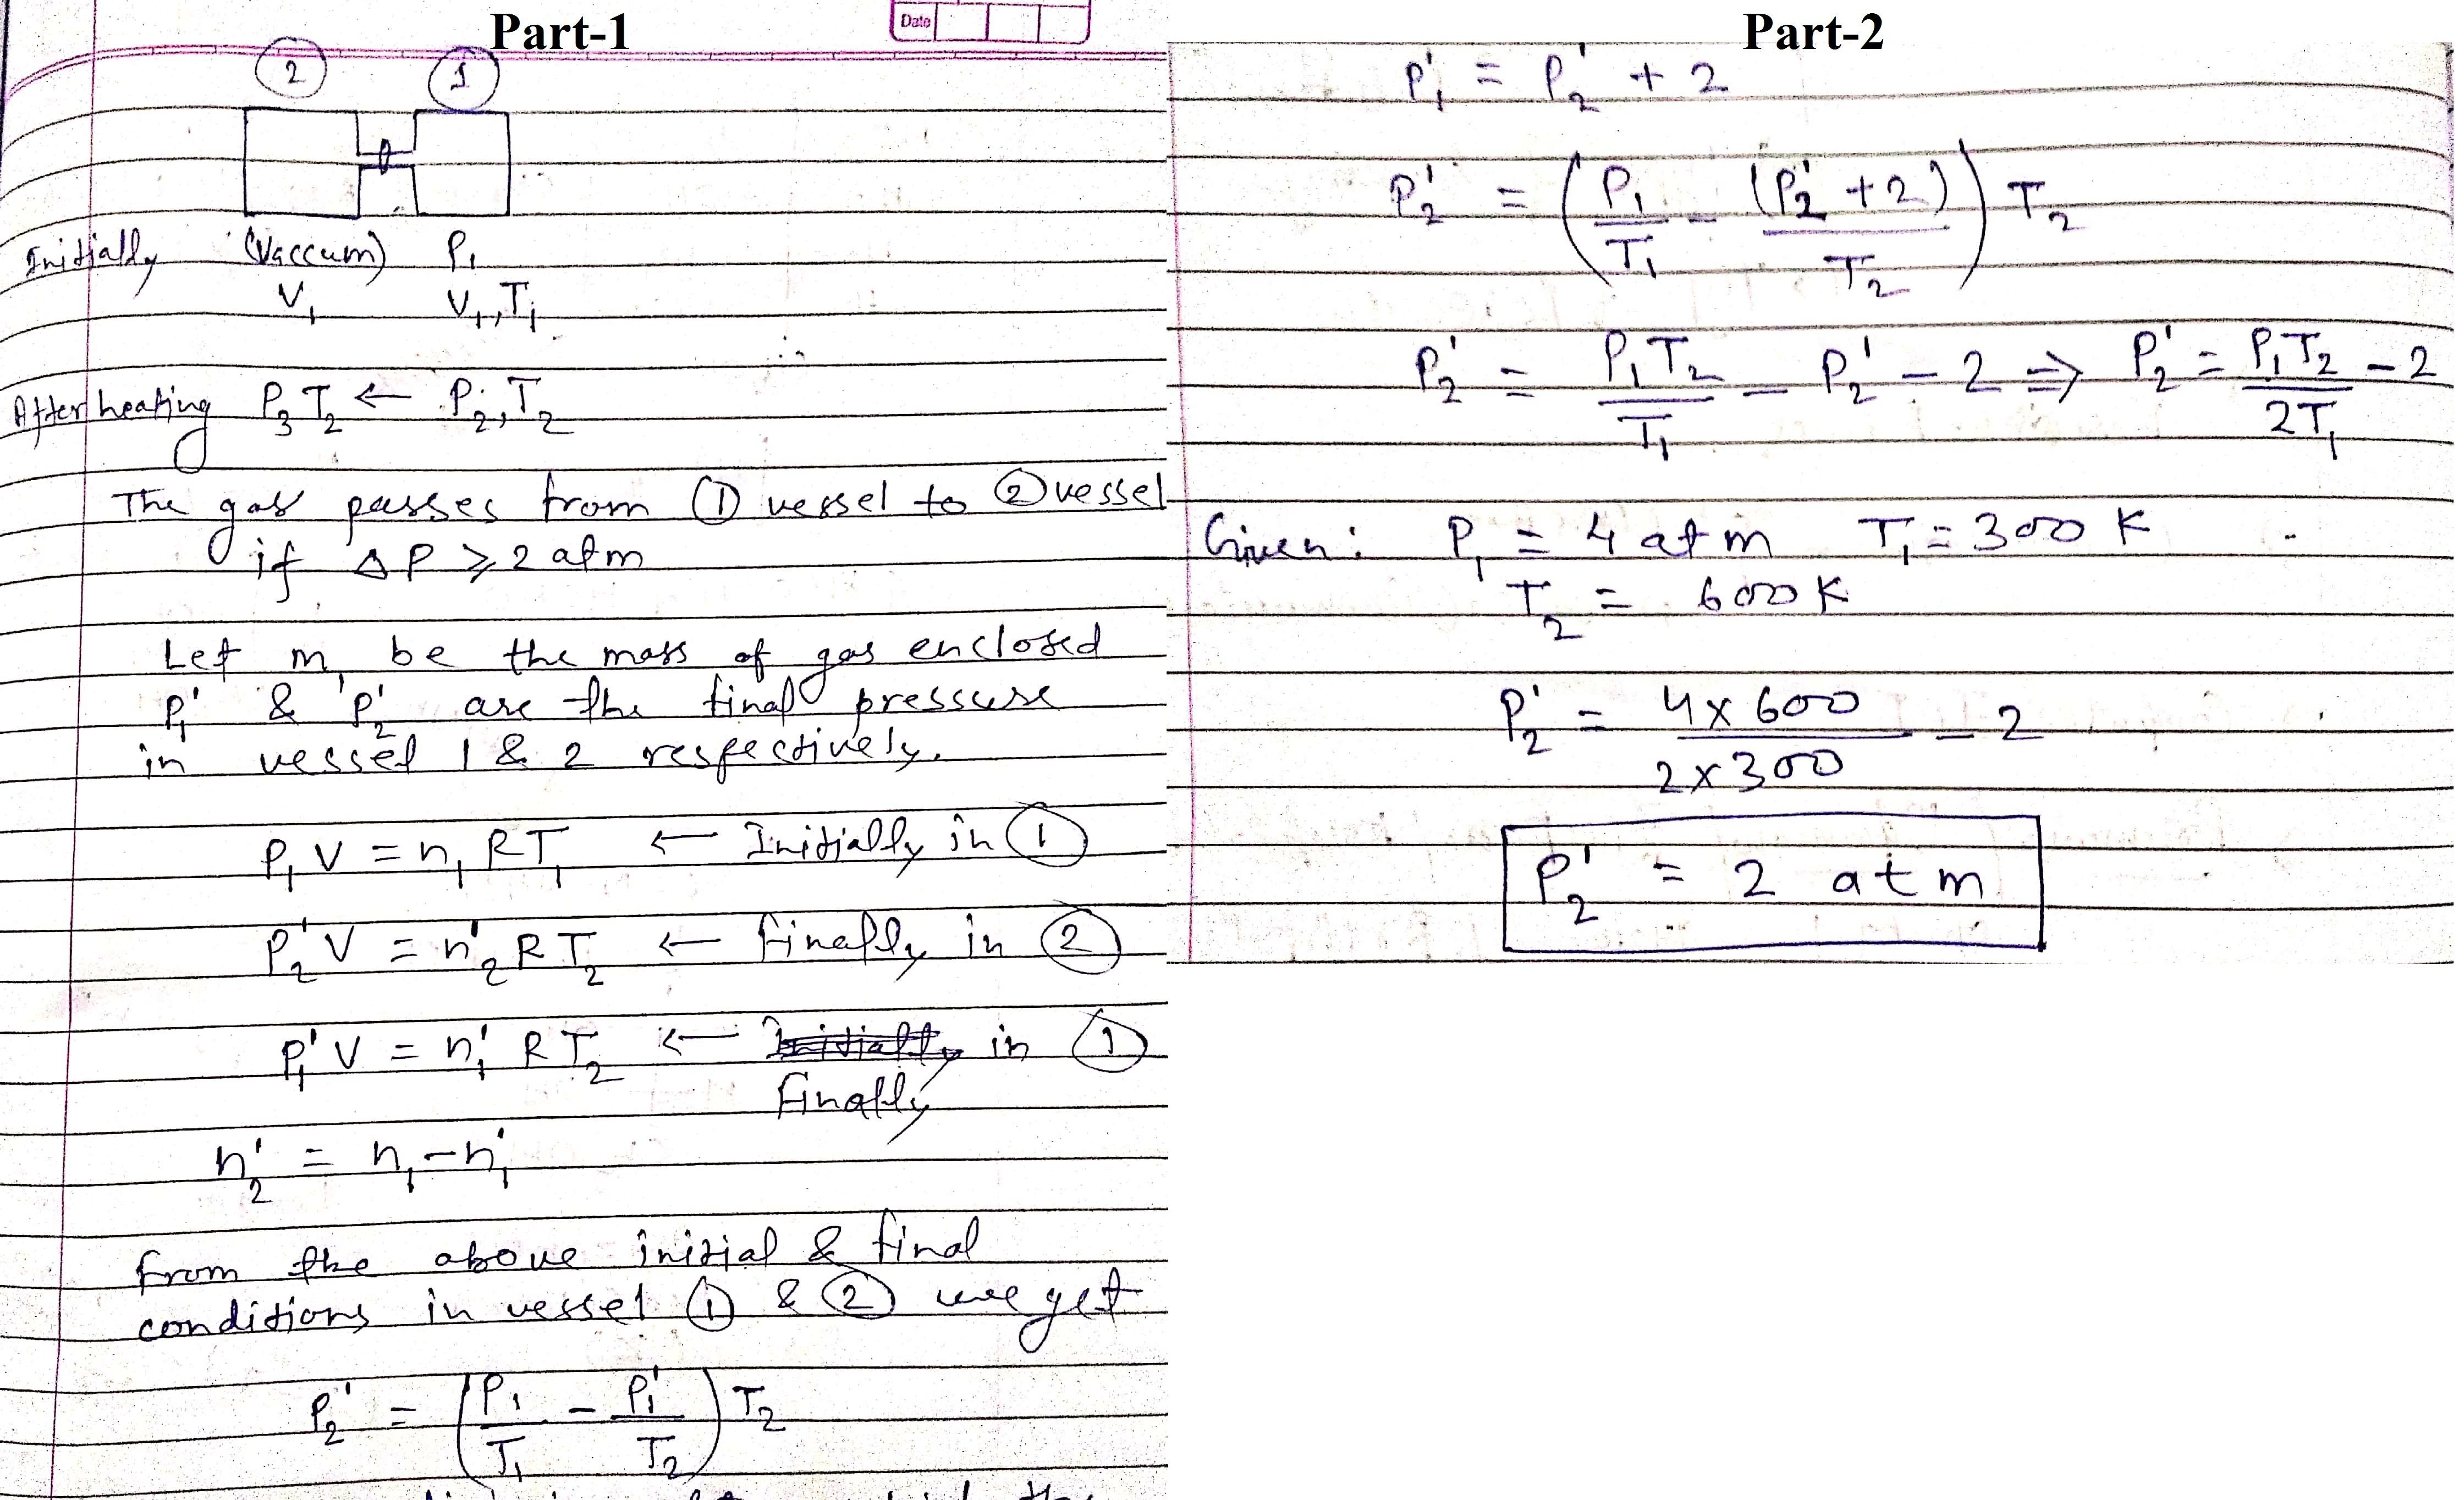 Part-1
Date
2 1
Initially (Vaccum) P₁
V₁ V₁, T₁
After heating P₃ T₂ ← P₂, T₂
The gas passes from ① vessel to ② vessel
if ΔP ≥ 2 atm
Let m be the mass of gas enclosed
P₁' & P₂' are the final pressure
in vessel 1 & 2 respectively.
P₁ V = n₁ RT₁ ← Initially in ①
P₂' V = n₂' R T₂ ← finally in ②
P₁' V = n₁' R T₂ ← Initially in ①
Finally
n₂' = n₁ - n₁'
from the above initial & final
conditions in vessel ① & ② we get
P₂' = (P₁/T₁ - P₁'/T₂) T₂
Part-2
P₁' = P₂' + 2
P₂' = (P₁/T₁ - (P₂' + 2)/T₂) T₂
P₂' = P₁T₂/T₁ - P₂' - 2 ⇒ P₂' = P₁T₂/2T₁ - 2
Given: P₁ = 4 atm T₁ = 300 K
T₂ = 600 K
P₂' = 4 x 600 / 2 x 300 - 2
P₂' = 2 atm